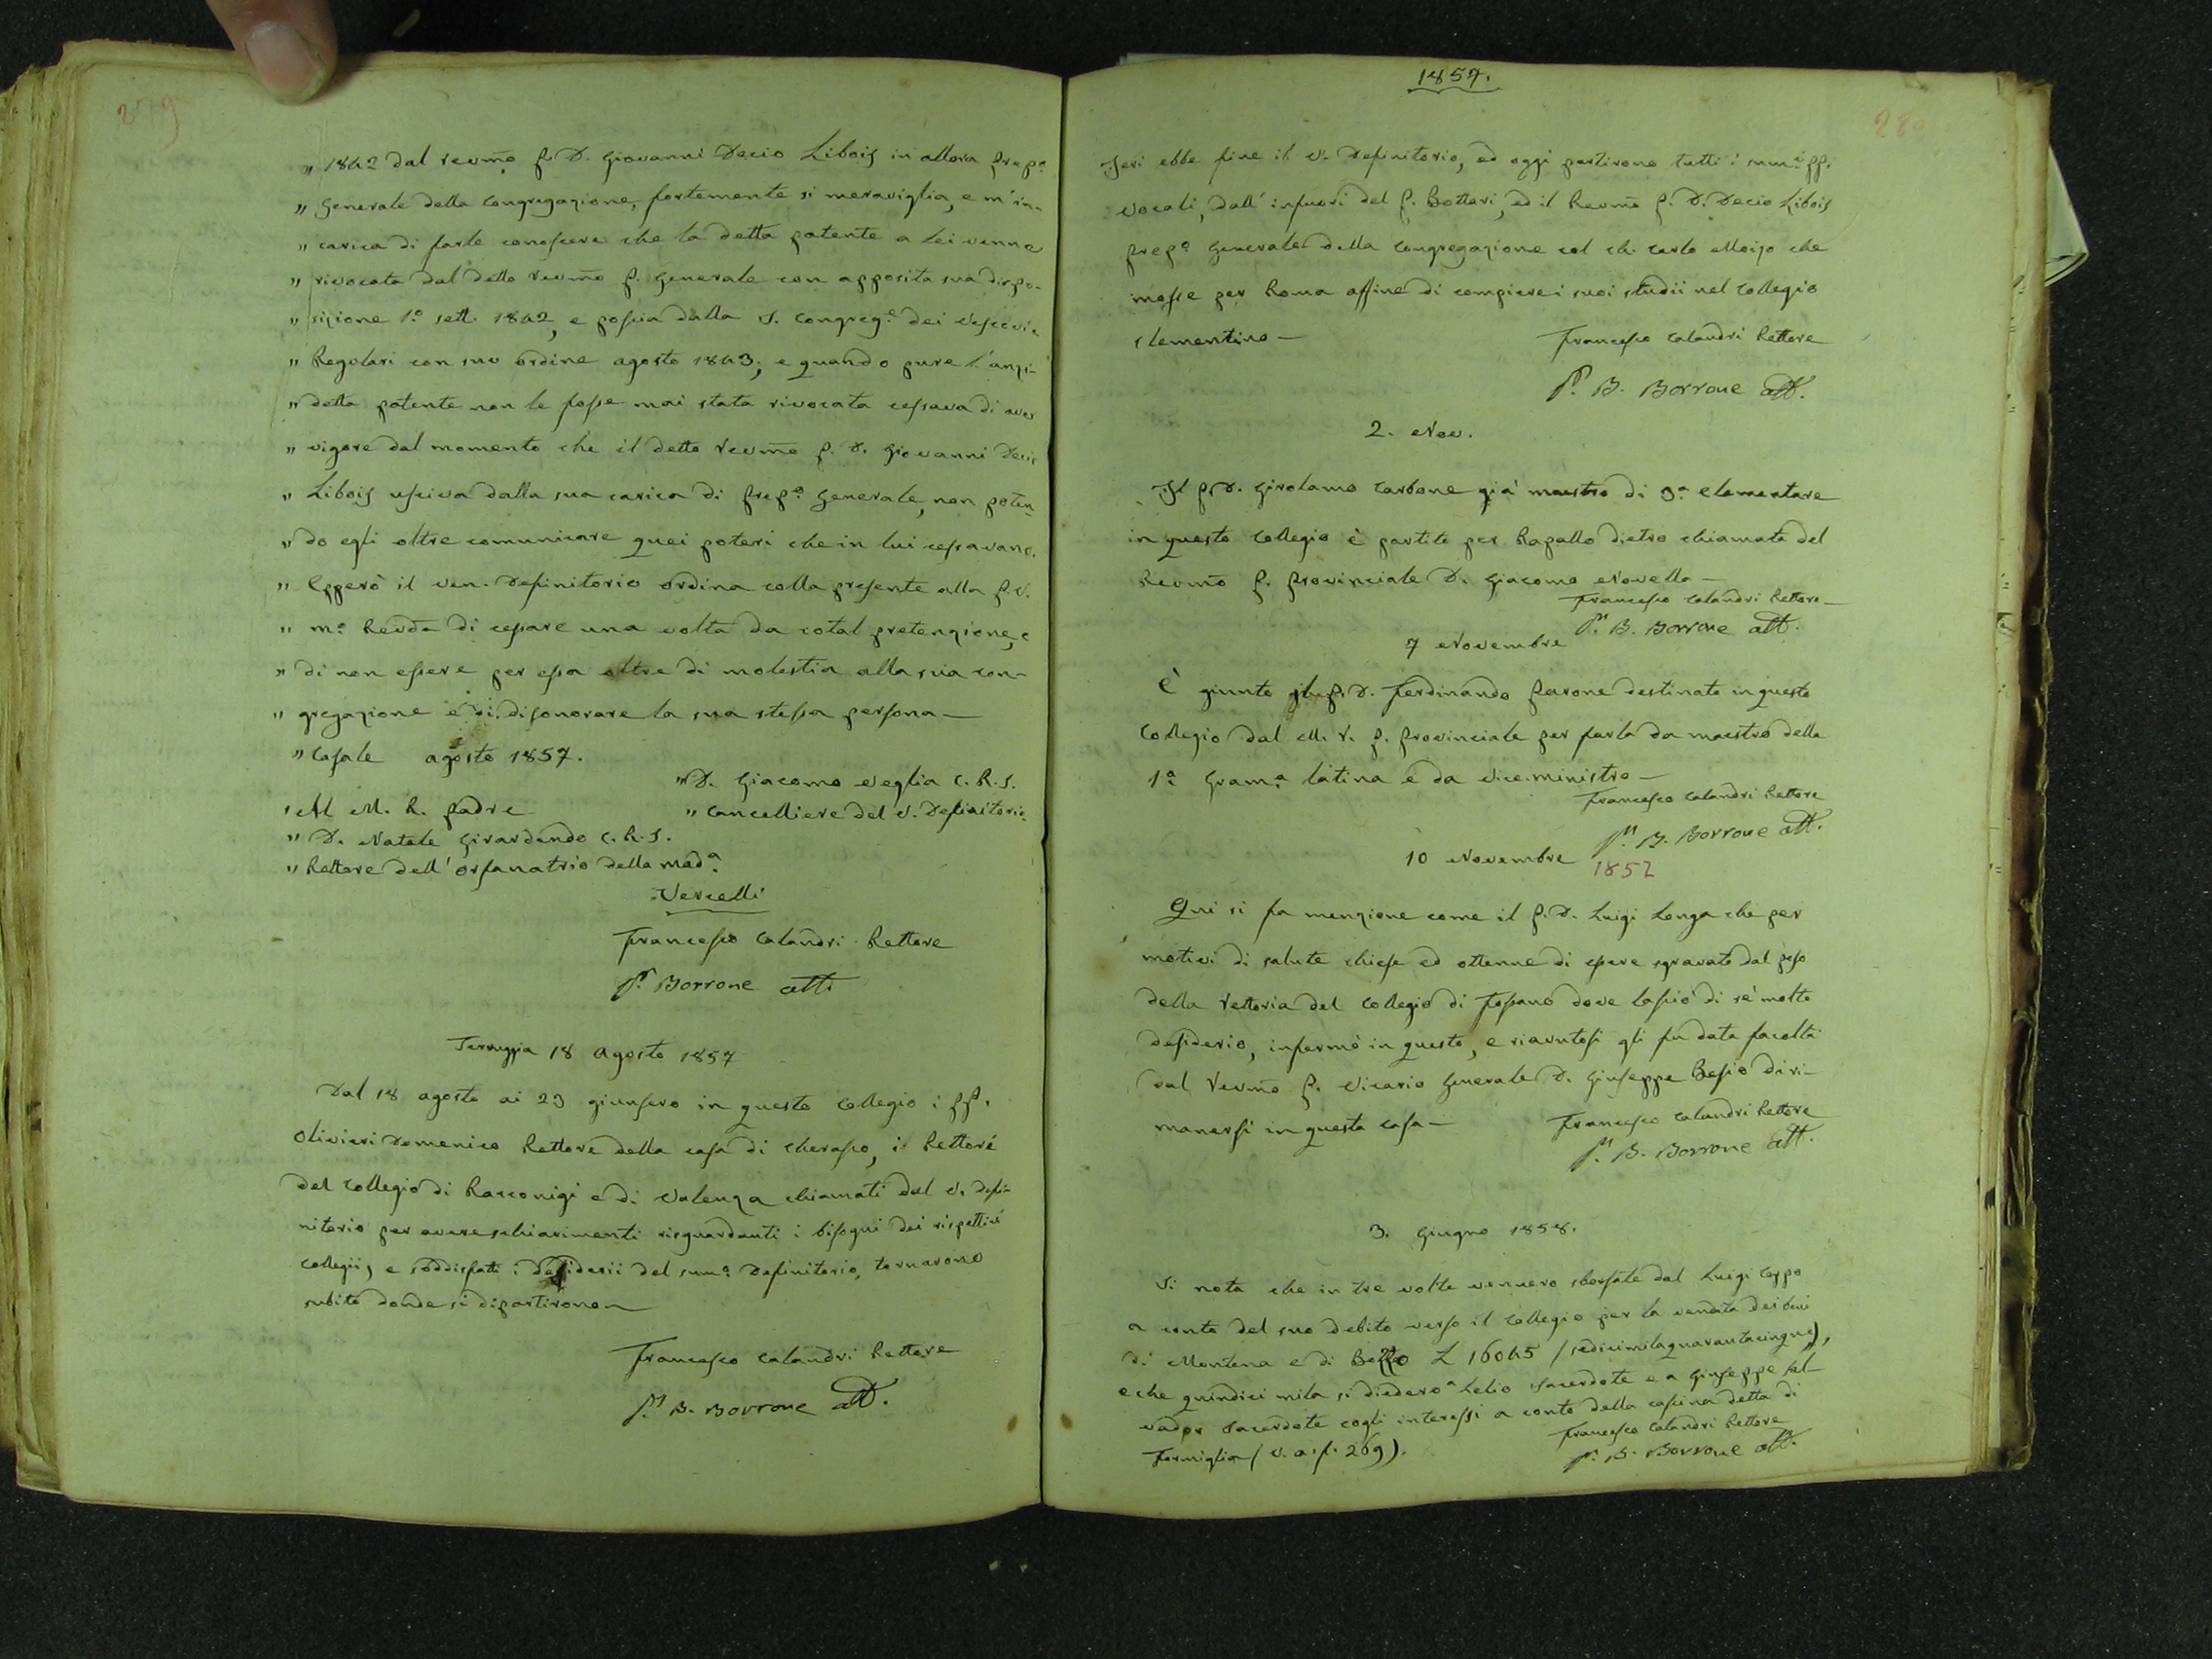 279
" 1842 dal revmo P. D. Giovanni Decio Libois in allora Prepo
" Generale della Congregazione, fortemente si meraviglia, e m'in-
" carica di farle conoscere che la detta patente a Lei venne
" rivocata dal detto revmo P. Generale con apposita sua dispo-
" sizione 1.o sett. 1842, e poscia dalla S. Congreg.e dei Vescovi e
" Regolari con suo ordine agosto 1843; e quando pure l'anzi-
" detta patente non le fosse mai stata rivocata cessava di aver
" vigore dal momento che il detto Revmo P. D. Giovanni Decio
" Libois usciva dalla sua carica di Prep.o Generale, non poten-
" do egli oltre comunicare quei poteri che in lui cessavano.
" Epperò il ven. Definitorio ordina colla presente alla P. V.
" m.o Revda di cessare una volta da cotal pretenzione, e
" di non essere per essa oltre di molestia alla sua con-
" gregazione e di disonorare la sua stessa persona —
" Casale agosto 1857.
" D. Giacomo Veglia C. R. S.
" Cancelliere del V. Definitorio
" Al M. R. Padre
" D. Natale Girardengo C. R. S.
" Rettore dell'orfanatrio della Mad.a
Vercelli
Francesco Calandri Rettore
P. Borrone atti
18 agosto 1857
Dal 18 agosto ai 23 giunsero in questo Collegio i PP.
Olivieri Domenico Rettore della casa di Cherasco, i Rettori
del Collegio di Racconigi e di Valenza chiamati dal V. Defi-
nitorio per avere schiarimenti risguardanti i bisogni dei rispettivi
Collegii, e soddisfatti i desiderii del sum.o Definitorio, tornarono
subito donde si dipartirono —
Francesco Calandri Rettore
P. B. Borrone att.
1857.
280
Jeri ebbe fine il V. Definitorio, ed oggi partirono tutti i PP.
Vocali, dall'infuori del P. Bottari, ed il Revmo P. D. Decio Libois
Prep.o Generale della Congregazione col ch. Carlo Moizo che
mosse per Roma affine di compiere i suoi studii nel Collegio
Clementino —
Francesco Calandri Rettore
P. B. Borrone att.
2. Nov.
Il P. D. Girolamo Carbone già maestro di 3.a elementare
in questo Collegio è partito per Rapallo dietro chiamata del
Revmo P. Provinciale D. Giacomo Novella —
Francesco Calandri Rettore —
P. B. Borrone att.
7 Novembre
È giunto il P. D. Ferdinando Pavone destinato in questo
Collegio dal M. R. P. Provinciale per farla da maestro della
1.a Gram.a latina e da Vice-ministro —
Francesco Calandri Rettore
P. B. Borrone att.
10 Novembre 1852
Qui si fa menzione come il P. D. Luigi Longa che per
motivi di salute chiese ed ottenne di essere sgravato dal peso
della rettoria del Collegio di Fossano dove lasciò di sè molto
desiderio, infermò in questo, e riavutosi gli fu data facoltà
dal Revmo P. Vicario Generale D. Giuseppe Besio di ri-
manersi in questa casa —
Francesco Calandri Rettore
P. B. Borrone att.
3. Giugno 1858.
Si nota che in tre volte vennero sborsate dal Luigi Ceppo
a conto del suo debito verso il Collegio per la vendita dei beni
di Montena e di L 16045 (sedicimilaquarantacinque),
e che quindici mila si diedero a Lelio Sacerdote e a Giuseppe Sal-
vador Sacerdote cogli interessi a conto della cascina detta di
Formiglia (V. a. p. 269).
Francesco Calandri Rettore
P. B. Borrone att.